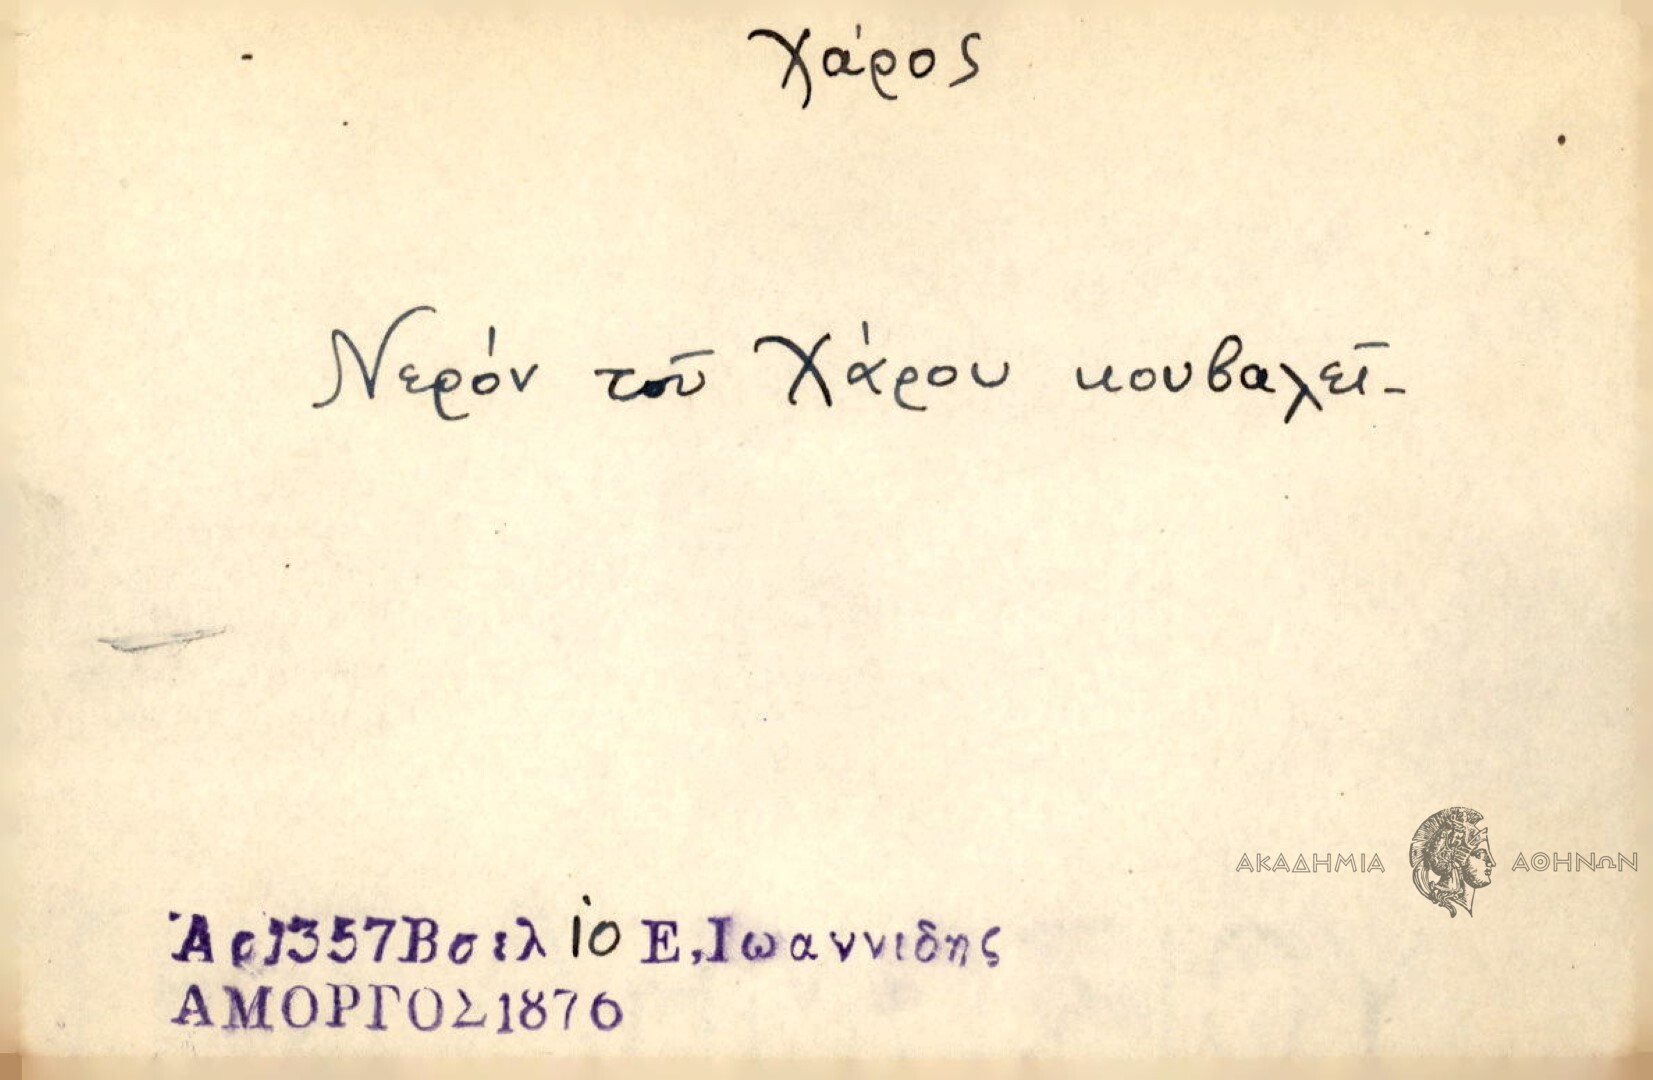 Χάρος
Νερόν τοῦ Χάρου κουβαλεῖ_
ΑΚΑΔΗΜΙΑ ΑΘΗΝΩΝ
Ἀρ1357Βσελ 10 Ε,Ιωαννιδης
ΑΜΟΡΓΟΣ1876